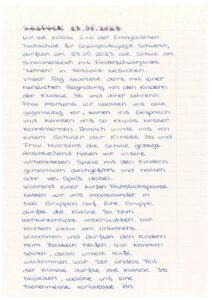 Rostock 23.05.2023
Wir die Klasse 21a der Evangelischen
Fachschule für Sozialpädagogik Schwerin,
durften am 23.05.2023 die Schule am
Schwanenteich mit Förderschwerpunkt
"Lernen" in Rostock besuchen.
Unser Tag startete dort mit einer
herzlichen Begrüßung von den Kindern
der Klasse 3b und ihrer Lehrerin
Frau Martens. Wir stellten uns alle
gegenseitig vor, kamen ins Gespräch
und konnten uns so etwas besser
kennenlernen. Danach wurde uns von
einem Schüler der Klasse 3b und
Frau Martens die Schule gezeigt.
Anschließend haben wir unsere
vorbereiteten Spiele mit den Kindern
gemeinsam durchgeführt und hatten
sehr viel Spaß dabei.
Während einer kurzen Frühstückspause
teilten wir uns untereinander in
zwei Gruppen auf. Eine Gruppe
durfte die Klasse 3a beim
Werkunterricht unterstützen. Wir
konnten aktiv am Unterricht
teilnehmen und durften den Kindern
beim Basteln helfen. Wir konnten
spüren, dass unsere Hilfe
willkommen war. Der andere Teil
der Klasse, durfte die Klasse 3b
begleiten, welche uns eine
Bienenmesse vorstellte. An